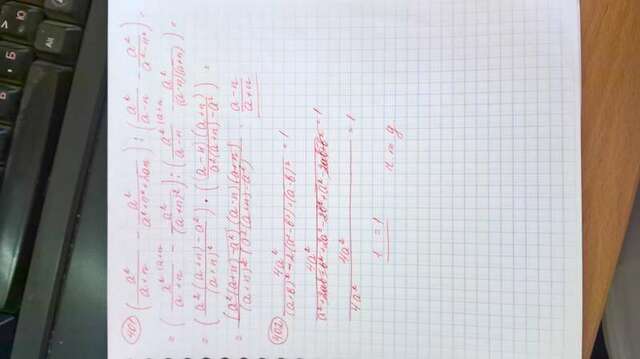 401 (a²/(a+n) - a²/(a²+n²+2an)) : (a²/(a-n) - a²/(a²-n²)) =
= (a² (a+n/(a+n) - a²/(a+n)²) : (a² (a+n/(a-n) - a²/((a-n)(a+n))) =
= ((a²(a+n)-a²)/(a+n)²) · ((a-n)(a+n)/(a²(a+n)-a²)) =
= (a²(a+n)-a²)(a-n)(a+n)/((a+n)²(a²(a+n)-a²)) = (a-n)/(a+n)
402 4a²/((a+b)²+2(a²-b²)+(a-b)²) = 1
4a²/(a²+2ab+b²+2a²-2b²+a²-2ab+b²) = 1
4a²/4a² = 1
1 = 1 ч.т.д.